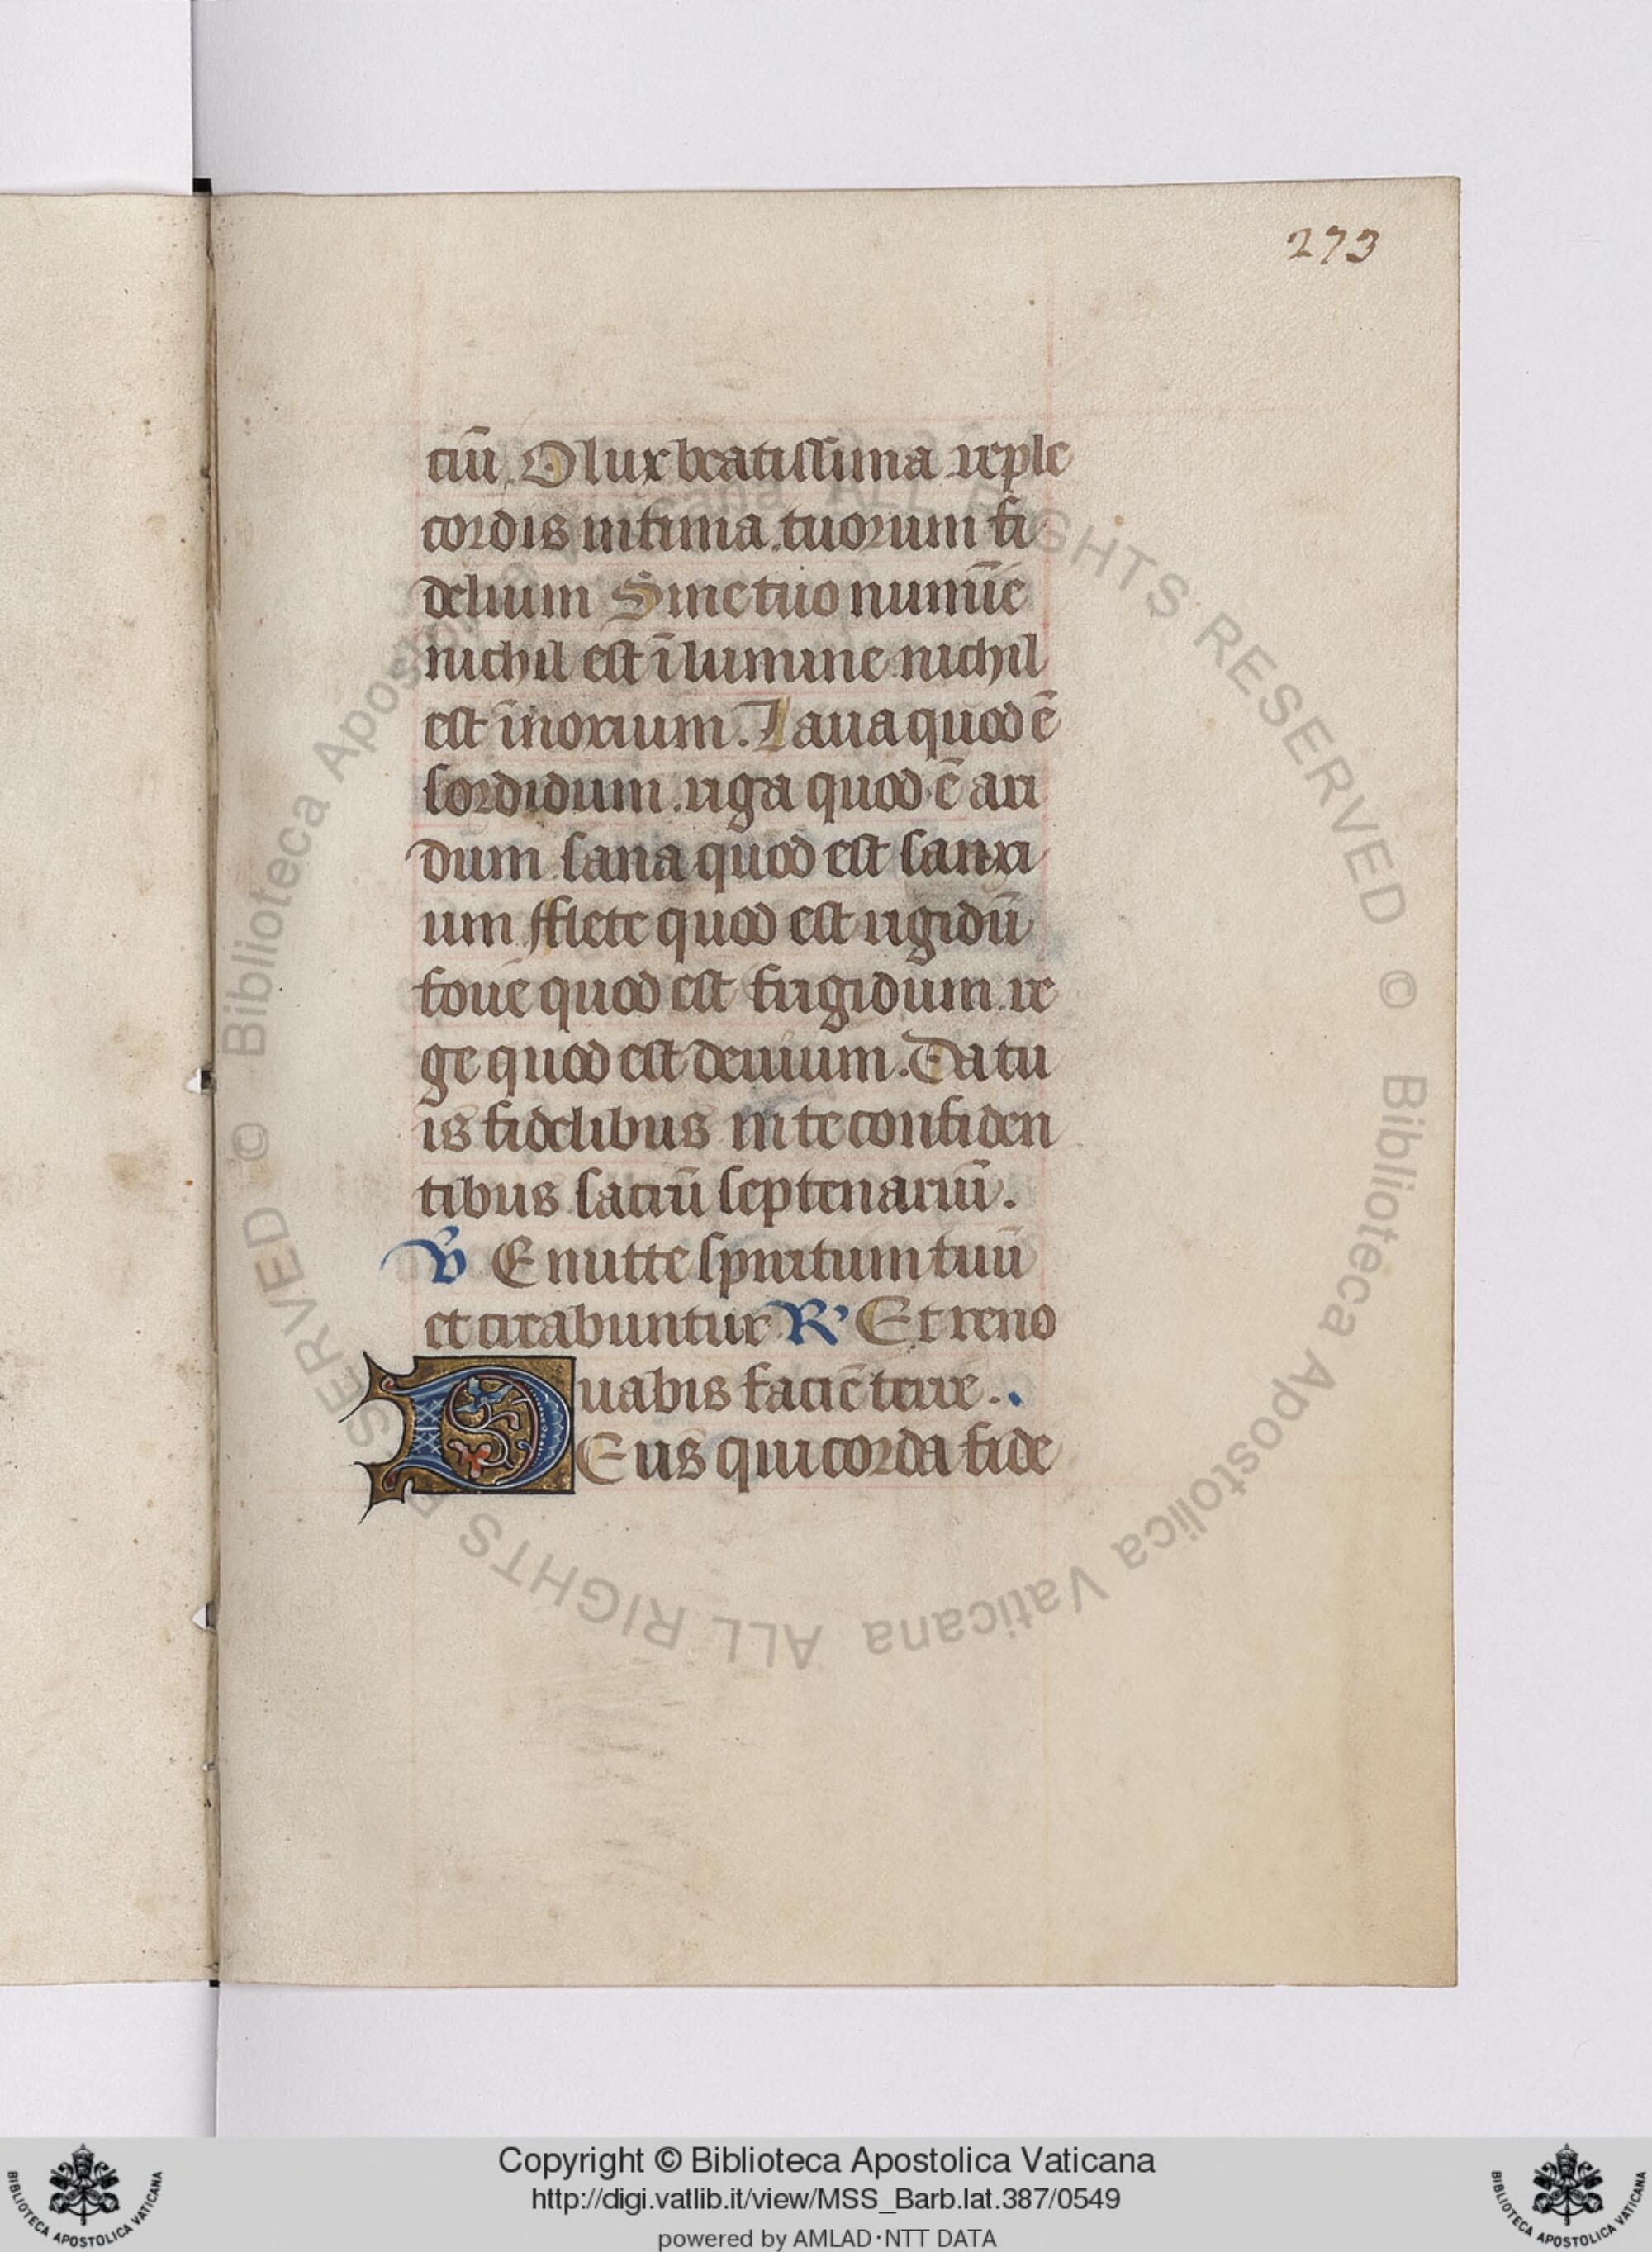 273
ciū. O lux beatissima reple
cordis intima. tuorum fi
delium Sine tuo numīe
nichil est ī lumine nichil
est īnoxium. Laua quod ē
sordidum. riga quod ē ari
dum sana quod est sanxi
um fflete quod est rigidū
foue quod est frigidum. re
ge quod est deuium. Da tu
is fidelibus in te confiden
tibus sacrū septenariū.
V̄ Emitte spiritum tuū
et creabuntur R' Et reno
uabis faciē terre.
DEus qui corda fide
© Biblioteca Apostolica Vaticana ALL RIGHTS RESERVED © Biblioteca Apostolica Vaticana ALL RIGHTS RESERVED
Copyright © Biblioteca Apostolica Vaticana
http://digi.vatlib.it/view/MSS_Barb.lat.387/0549
powered by AMLAD·NTT DATA
BIBLIOTECA APOSTOLICA VATICANA
BIBLIOTECA APOSTOLICA VATICANA